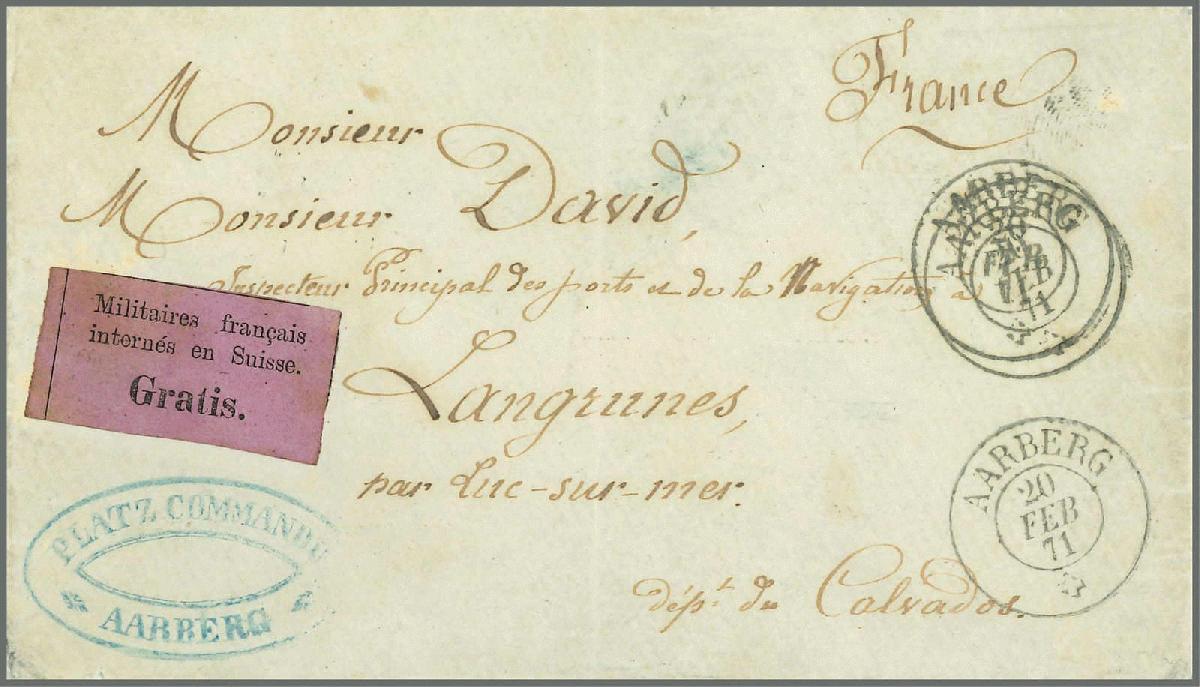 France
Monsieur
Monsieur David,
Inspecteur Principal des ports et de la Navigation à
Langrunes,
par Luc-sur-mer.
dépt. du Calvados.
Militaires français
internés en Suisse.
Gratis.
PLATZ COMMANDO
AARBERG
AARBERG
20
FEB
71
AARBERG
20
FEB
71